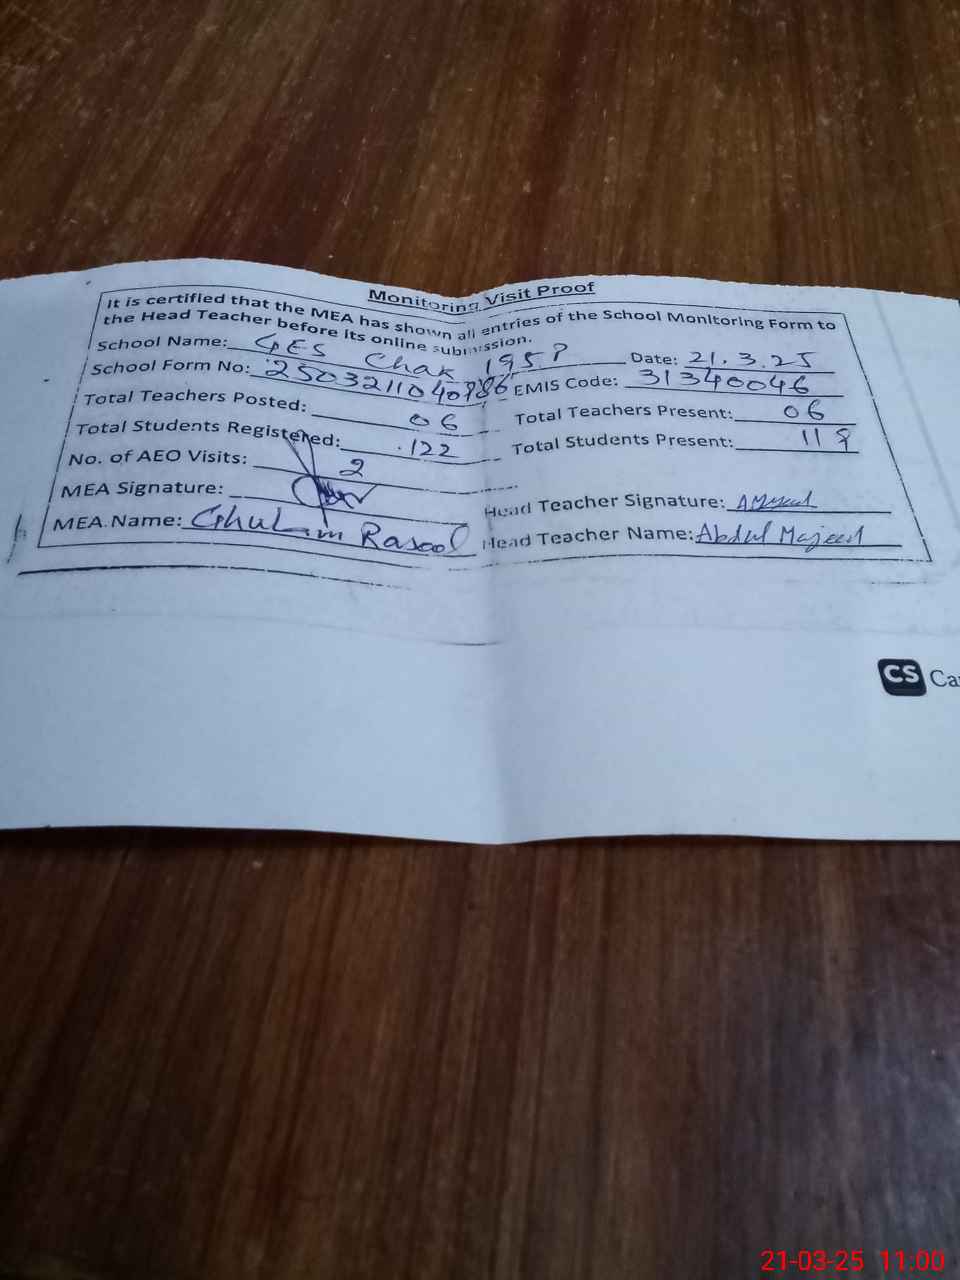 Monitoring Visit Proof
It is certified that the MEA has shown all entries of the School Monitoring Form to
the Head Teacher before its online submission.
School Name: GES Chak 195P Date: 21.3.25
School Form No: 2503211040786 EMIS Code: 31340046
Total Teachers Posted: 06 Total Teachers Present: 06
Total Students Registered: 122 Total Students Present: 119
No. of AEO Visits: 2
MEA Signature: Head Teacher Signature: AMajeed
MEA Name: Ghulam Rasool Head Teacher Name: Abdul Majeed
CS Ca
21-03-25 11:00